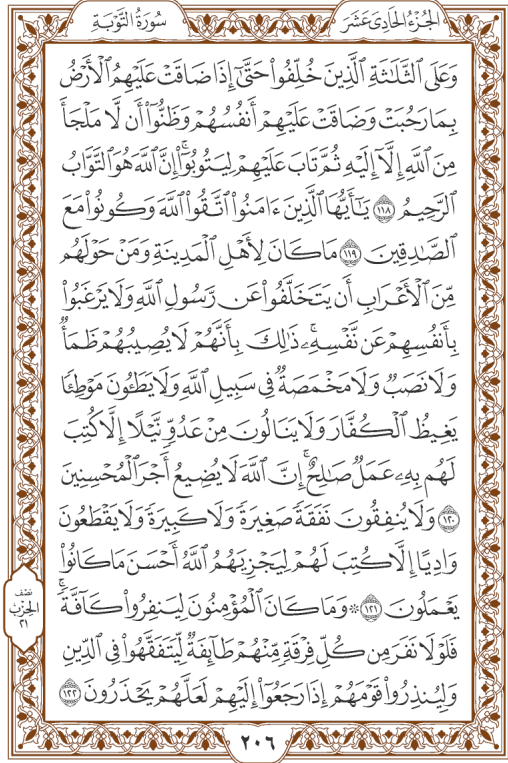 الجُزْءُ الحَادِي عَشَرَ سُورَةُ التَّوْبَةِ
وَعَلَى ٱلثَّلَٰثَةِ ٱلَّذِينَ خُلِّفُوا۟ حَتَّىٰٓ إِذَا ضَاقَتْ عَلَيْهِمُ ٱلْأَرْضُ
بِمَا رَحُبَتْ وَضَاقَتْ عَلَيْهِمْ أَنفُسُهُمْ وَظَنُّوٓا۟ أَن لَّا مَلْجَأَ
مِنَ ٱللَّهِ إِلَّآ إِلَيْهِ ثُمَّ تَابَ عَلَيْهِمْ لِيَتُوبُوٓا۟ ۚ إِنَّ ٱللَّهَ هُوَ ٱلتَّوَّابُ
ٱلرَّحِيمُ ١١٨ يَٰٓأَيُّهَا ٱلَّذِينَ ءَامَنُوا۟ ٱتَّقُوا۟ ٱللَّهَ وَكُونُوا۟ مَعَ
ٱلصَّٰدِقِينَ ١١٩ مَا كَانَ لِأَهْلِ ٱلْمَدِينَةِ وَمَنْ حَوْلَهُم
مِّنَ ٱلْأَعْرَابِ أَن يَتَخَلَّفُوا۟ عَن رَّسُولِ ٱللَّهِ وَلَا يَرْغَبُوا۟
بِأَنفُسِهِمْ عَن نَّفْسِهِۦ ۚ ذَٰلِكَ بِأَنَّهُمْ لَا يُصِيبُهُمْ ظَمَأٌ
وَلَا نَصَبٌ وَلَا مَخْمَصَةٌ فِى سَبِيلِ ٱللَّهِ وَلَا يَطَـُٔونَ مَوْطِئًا
يَغِيظُ ٱلْكُفَّارَ وَلَا يَنَالُونَ مِنْ عَدُوٍّ نَّيْلًا إِلَّا كُتِبَ
لَهُم بِهِۦ عَمَلٌ صَٰلِحٌ ۚ إِنَّ ٱللَّهَ لَا يُضِيعُ أَجْرَ ٱلْمُحْسِنِينَ
١٢٠ وَلَا يُنفِقُونَ نَفَقَةً صَغِيرَةً وَلَا كَبِيرَةً وَلَا يَقْطَعُونَ
وَادِيًا إِلَّا كُتِبَ لَهُمْ لِيَجْزِيَهُمُ ٱللَّهُ أَحْسَنَ مَا كَانُوا۟
يَعْمَلُونَ ١٢١ ۞ وَمَا كَانَ ٱلْمُؤْمِنُونَ لِيَنفِرُوا۟ كَآفَّةً ۚ
فَلَوْلَا نَفَرَ مِن كُلِّ فِرْقَةٍ مِّنْهُمْ طَآئِفَةٌ لِّيَتَفَقَّهُوا۟ فِى ٱلدِّينِ
وَلِيُنذِرُوا۟ قَوْمَهُمْ إِذَا رَجَعُوٓا۟ إِلَيْهِمْ لَعَلَّهُمْ يَحْذَرُونَ ١٢٢
نصف
الحزب
٢١
٢٠٦